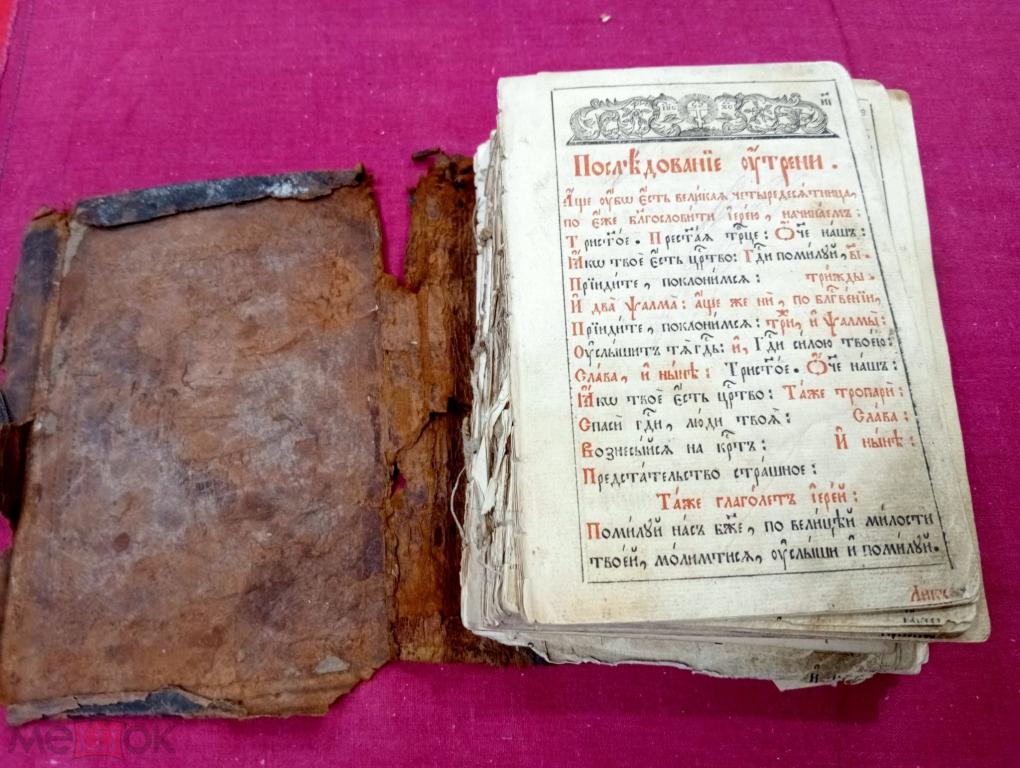 и҃і
Послѣдованїе ᲂу҆́трени.
А҆́ще ᲂу҆́бѡ є҆́сть вели́каѧ четыредесѧ́тница,
по є҆́же блгослови́ти і҆ере́ю, начина́емъ:
Трист҃о́е. Прест҃а́ѧ трⷪ҇це: Ѻ҆́ч҃е на́шъ:
Ꙗ҆́кѡ твоѐ є҆́сть црⷭ҇тво: Гдⷭ҇и поми́лꙋй, в҃і.
Прїиди́те, поклони́мсѧ: три́жды.
И҆ два̀ ѱалма̀: а҆́ще же нѝ, по блгⷭ҇ве́нїи,
Прїиди́те, поклони́мсѧ: три̑, и҆ ѱалмы̀:
Оу҆слы́шитъ тѧ̀ гдⷭ҇ь: и҆, Гдⷭ҇и си́лою твое́ю:
Сла́ва, и҆ ны́нѣ: Трист҃о́е. Ѻ҆́ч҃е на́шъ:
Ꙗ҆́кѡ твоѐ є҆́сть црⷭ҇тво: Та́же тропарѝ:
Спасѝ гдⷭ҇и, лю́ди твоѧ̑: Сла́ва:
Вознесы́йсѧ на крⷭ҇тъ: И҆ ны́нѣ:
Предста́тельство стра́шное:
Та́же глаго́летъ і҆ере́й:
Поми́лꙋй на́съ бж҃е, по вели́цѣй ми́лости
твое́й, мо́лимтисѧ, ᲂу҆слы́ши и҆ поми́лꙋй.
мешок